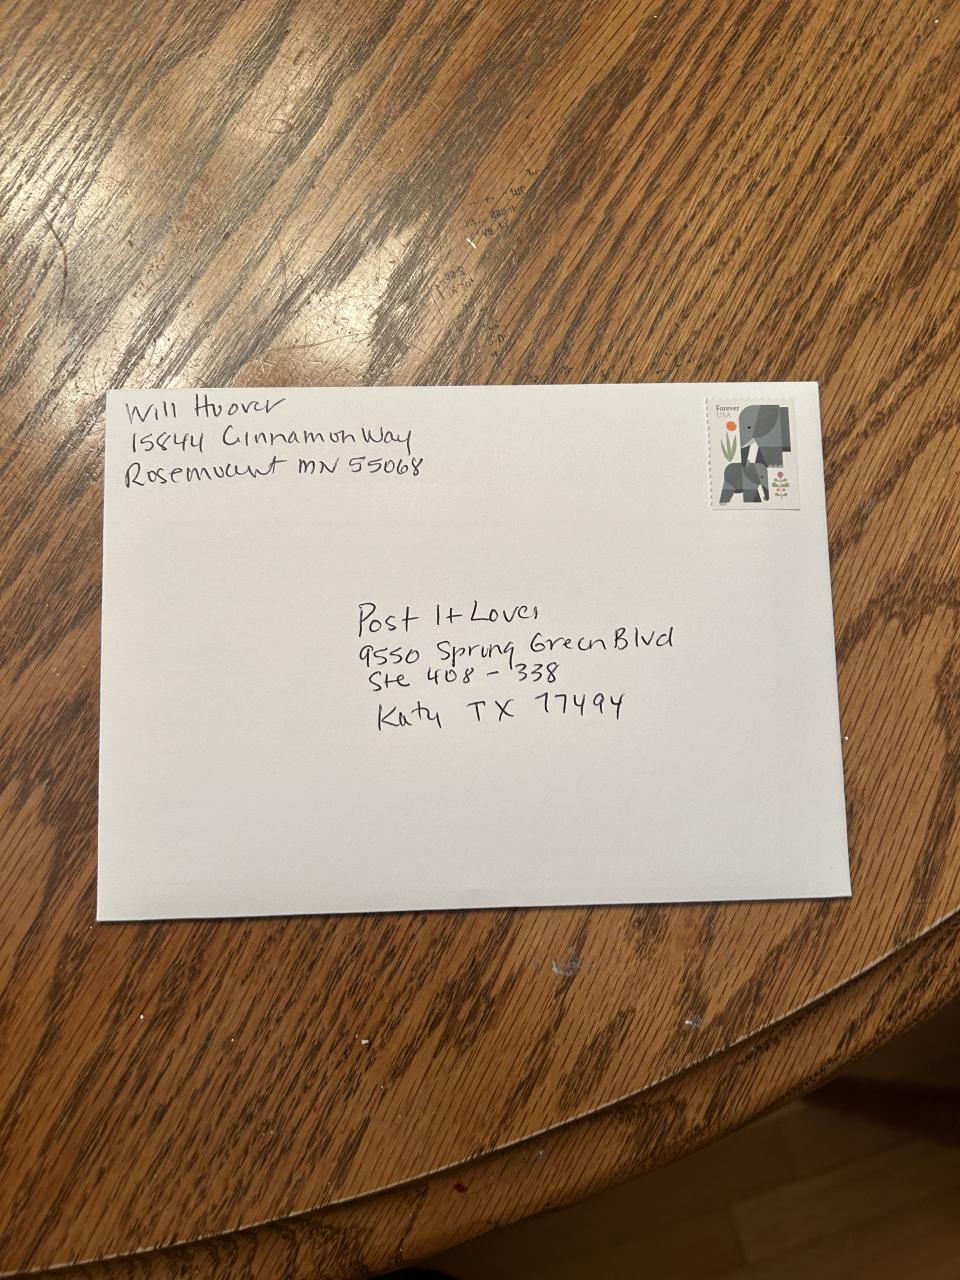 Will Hoover
15844 Cinnamon Way
Rosemount MN 55068
Forever
USA
Post It Lover
9550 Spring Green Blvd
Ste 408 - 338
Katy TX 77494